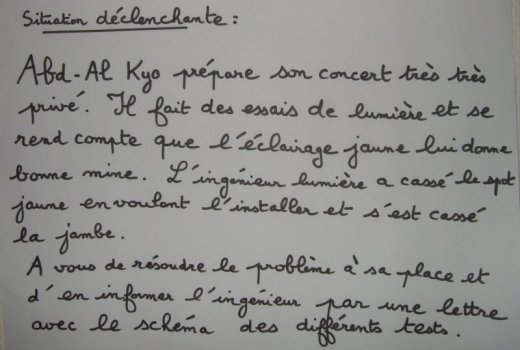 Situation déclenchante :
Abd-Al Kyo prépare son concert très très
privé. Il fait des essais de lumière et se
rend compte que l'éclairage jaune lui donne
bonne mine. L'ingénieur lumière a cassé le spot
jaune en voulant l'installer et s'est cassé
la jambe.
A vous de résoudre le problème à sa place et
d'en informer l'ingénieur par une lettre
avec le schéma des différents tests.